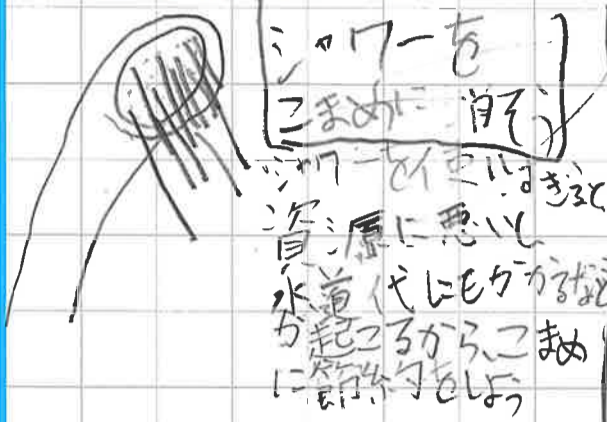 シャワーを
こまめに 消そう
シャワーを使いすぎると
資源に悪いし
水道代にもかかるなど
が起こるから、こまめ
に節約をしよう